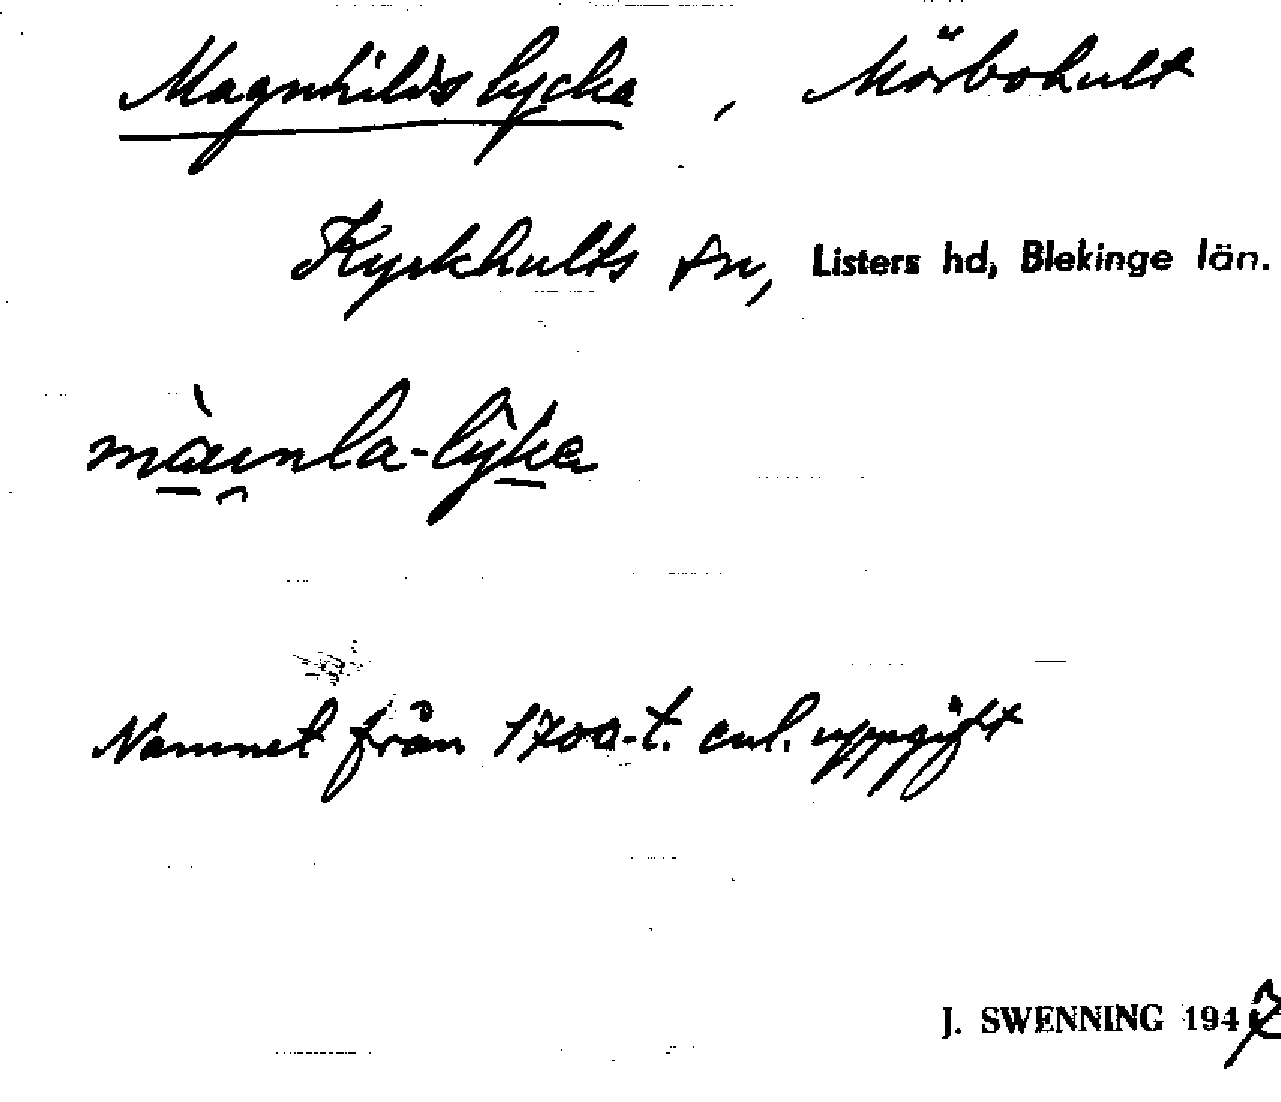 Magnhilds lycka, Mörbohult
Kyrkhults sn, Listers hd, Blekinge län.
màu̯nla-lỳka
Namnet från 1700-t. enl. uppgift
J. SWENNING 1942